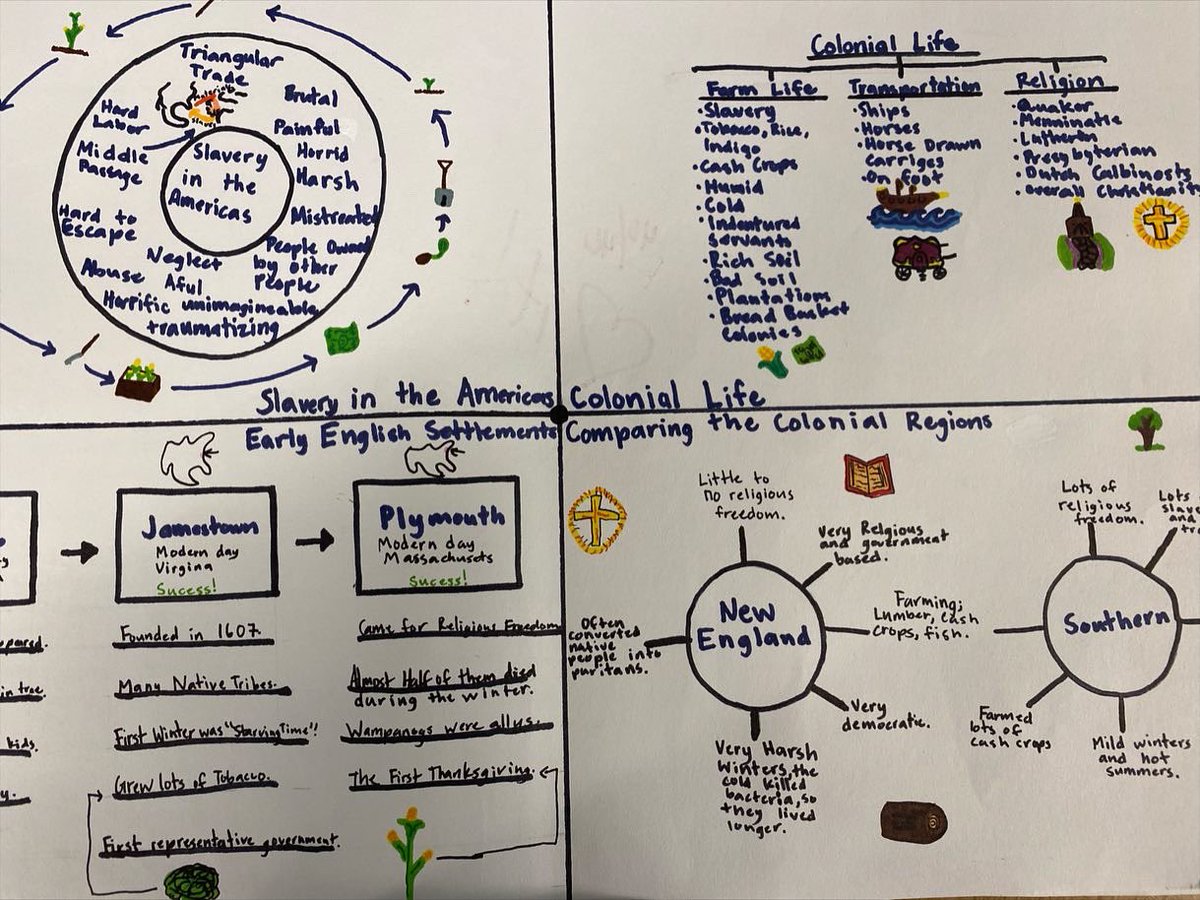 Triangular
Trade
Brutal
Hard
Labor
Painful
Middle
Passage
Horrid
Harsh
Slavery
in the
Americas
Mistreated
Hard to
Escape
People Owned
by other
People
Neglect
Abuse Aful
Horrific unimagineable
traumatizing
Slavery in the Americas
Colonial Life
Farm Life
•Slavery
•Tobacco, Rice,
Indigo
•Cash Crops
•Humid
•Cold
•Indentured
Servants
•Rich Soil
•Bad Soil
•Plantations
•Bread Basket
Colonies
Transportation
•Ships
•Horses
•Horse Drawn
Carriges
•On foot
Religion
•Quaker
•Menninatie
•Lutheran
•Presbyterian
•Dutch Calbinosts
•overall Christianity
Colonial Life
Early English Settlements
Jamestown
Modern day
Virgina
Sucess!
Founded in 1607.
Many Native Tribes.
First Winter was "Starving Time"!
Grew lots of Tobacco.
First representative government.
Plymouth
Modern day
Massachusets
Sucess!
Came for Religious Freedom
Almost Half of them died
during the winter.
Wampanogs were allys.
The First Thanksgiving.
kids.
Comparing the Colonial Regions
Little to
no religious
freedom.
Very Relgious
and government
based.
New
England
Farming;
Lumber, cash
crops, fish.
Often
converted
native
people into
puritans.
Very
democratic.
Very Harsh
Winters, the
cold killed
bacteria, so
they lived
longer.
Lots of
religious
freedom.
Lots
and
Southern
Farmed
lots of
cash crops
Mild winters
and hot
summers.